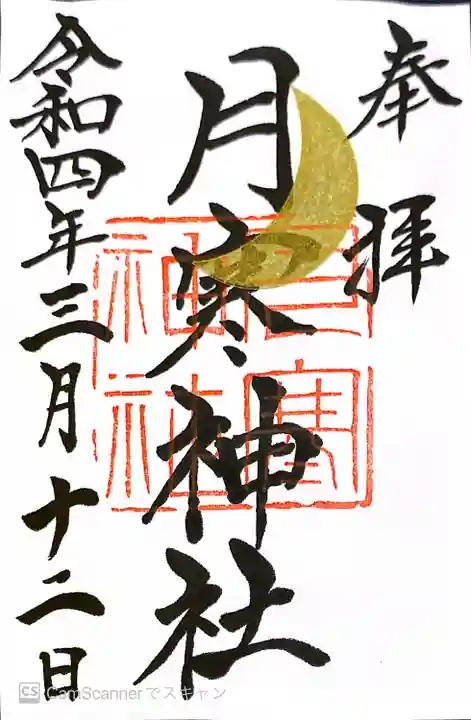 奉拝
月寒神社
月寒神社
令和四年三月十二日
CS CamScannerでスキャン